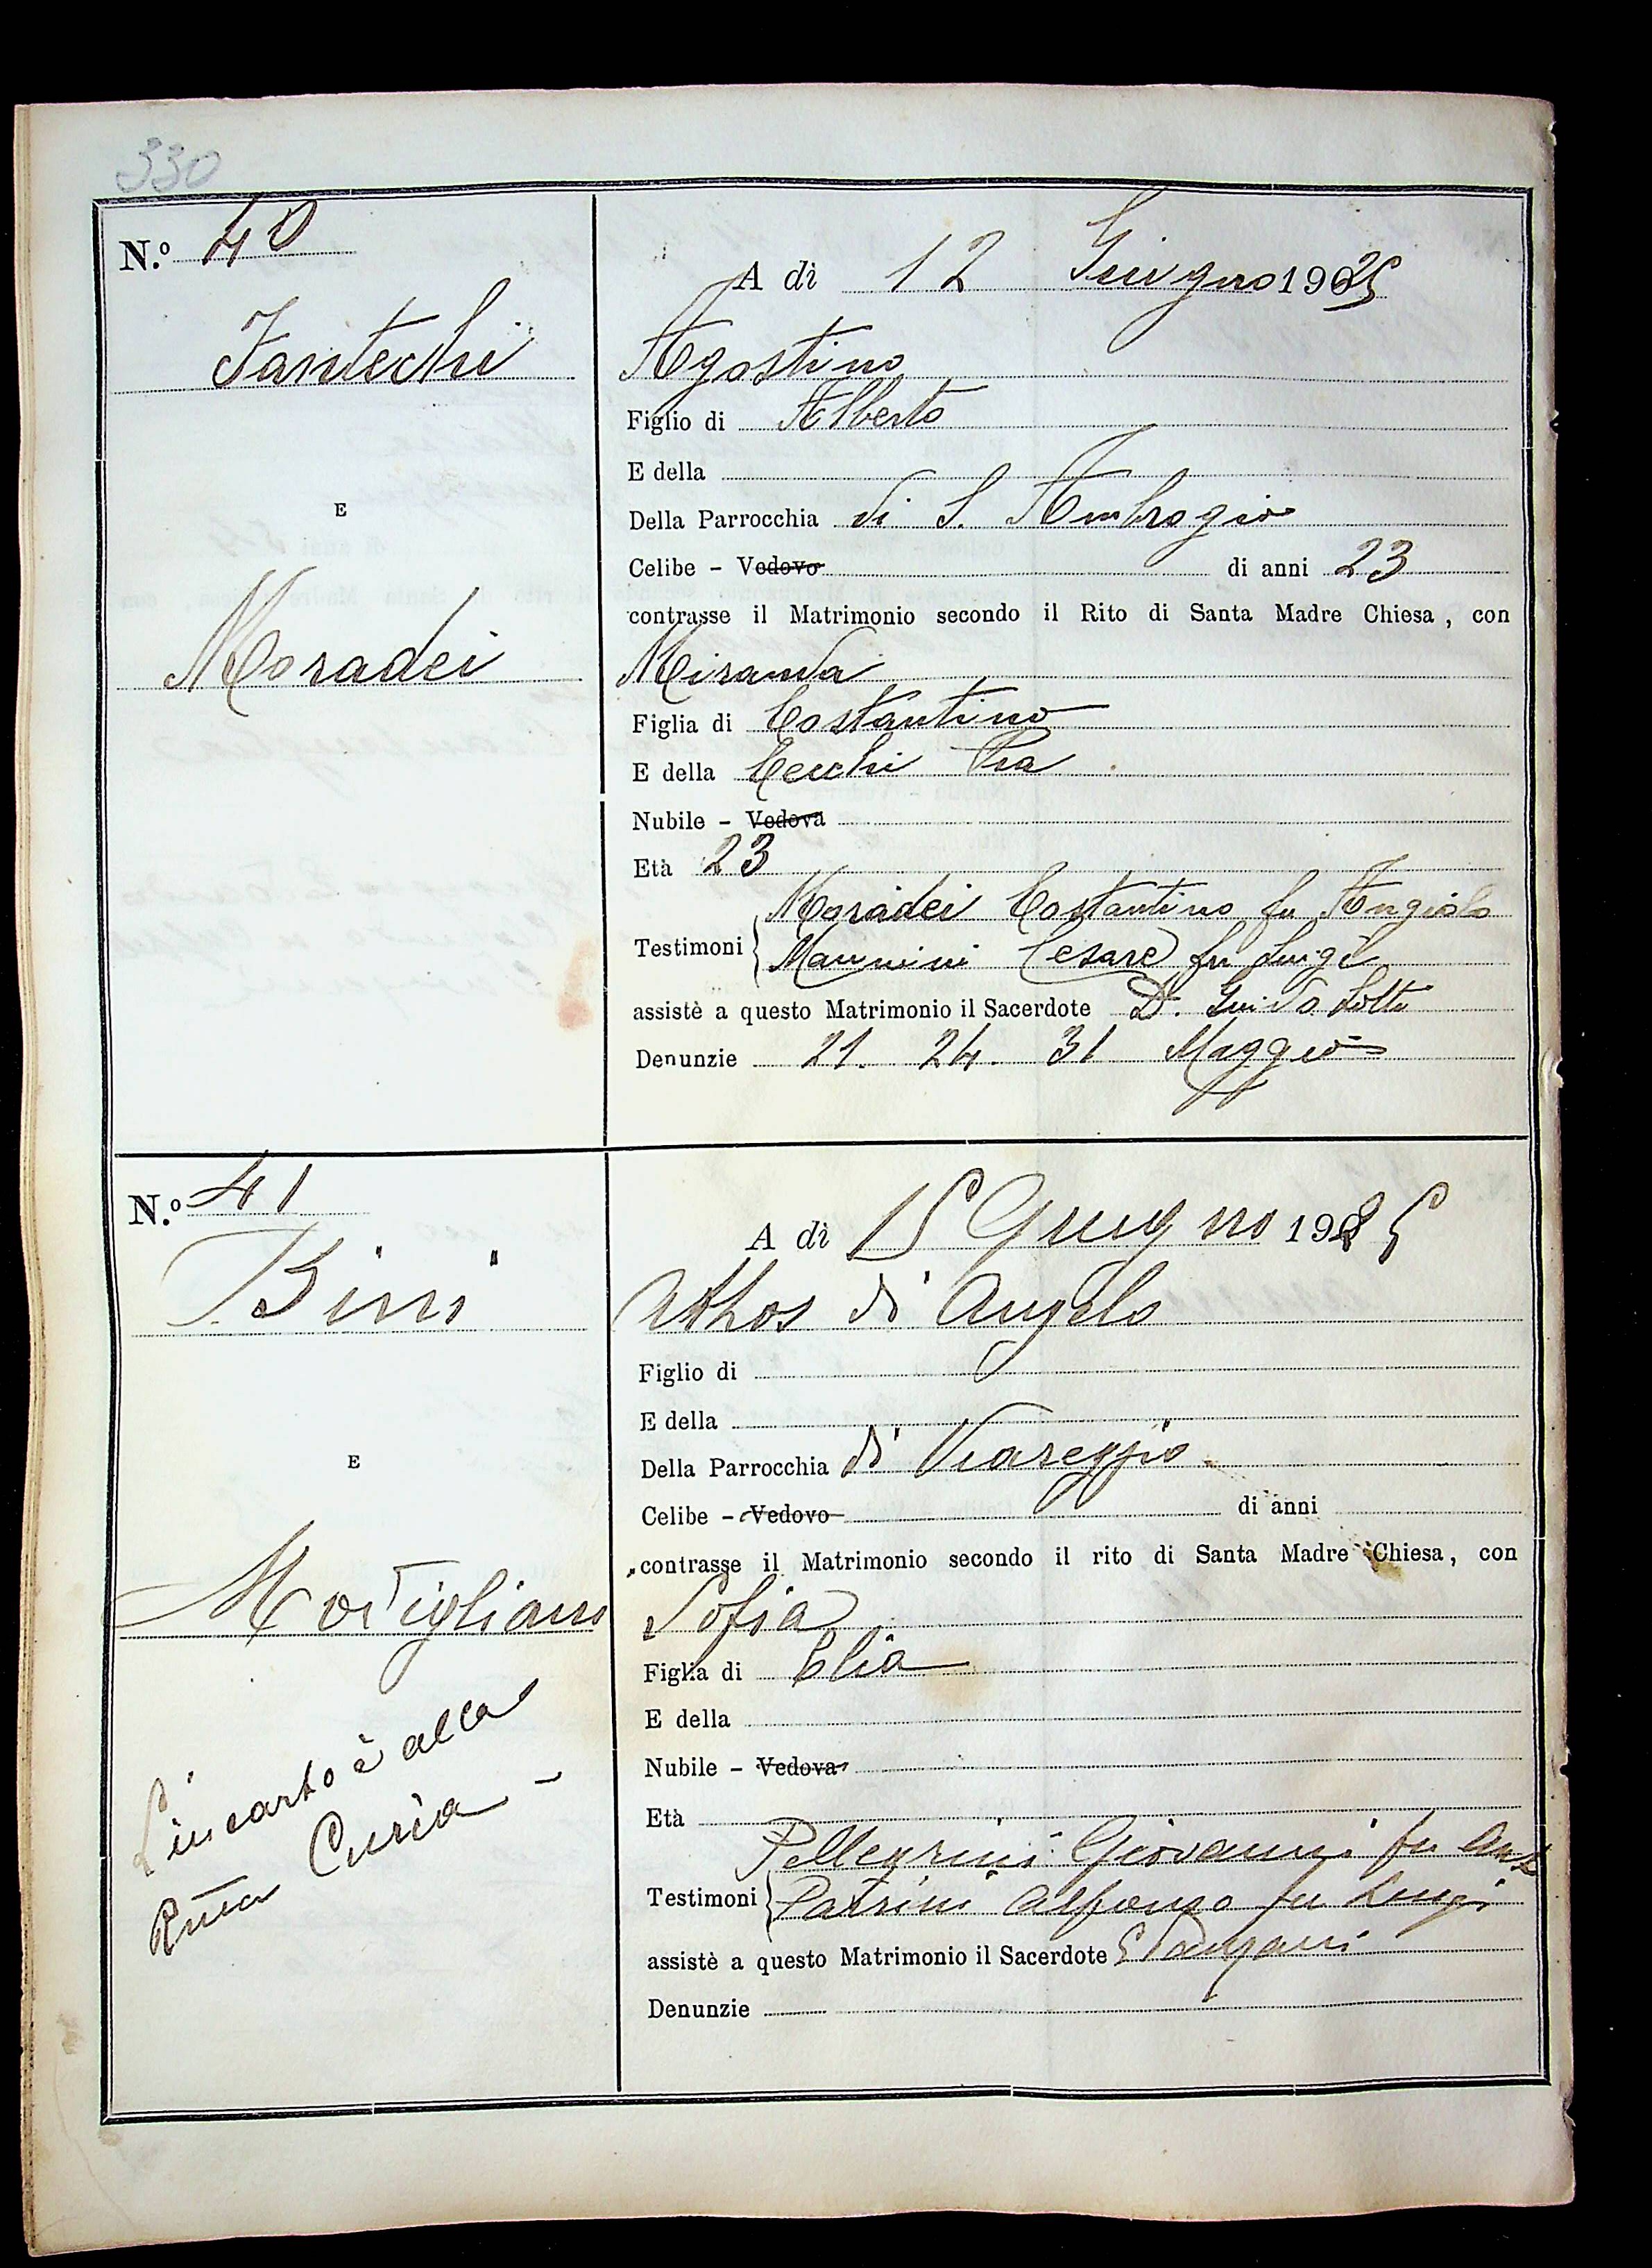 330
N.º 40
A dì 12 Giugno 1925
Fantechi
Agostino
Figlio di Alberto
E della
E
Della Parrocchia di S. Ambrogio
Celibe - Vedovo di anni 23
contrasse il Matrimonio secondo il Rito di Santa Madre Chiesa, con
Moradei
Miranda
Figlia di Costantino
E della Cecchi Pia
Nubile - Vedova
Età 23
Moradei Costantino fu Angiolo
Testimoni
Mannini Cesare fu Luigi
assistè a questo Matrimonio il Sacerdote D. Guido
Denunzie 21. 24. 31 Maggio
N.º 41
A dì 15 Giugno 1925
Bini
Athos di Angelo
Figlio di
E della
E
Della Parrocchia di Viareggio
Celibe - Vedovo di anni
contrasse il Matrimonio secondo il rito di Santa Madre Chiesa, con
Modigliani
Sofia
Figlia di Elia
E della
Nubile - Vedova
Età
L'incarto è alla
Rma Curia -
Pellegrini Giovanni fu
Testimoni
Patrini Alfonso fu Luigi
assistè a questo Matrimonio il Sacerdote
Denunzie